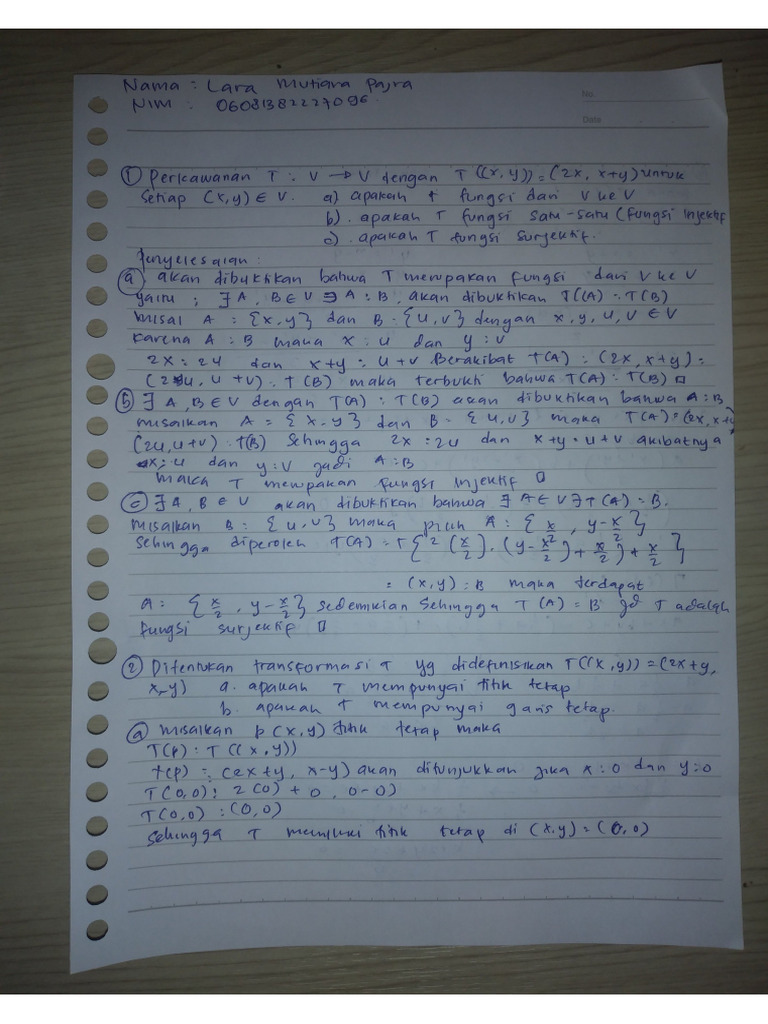 Nama : Lara Mutiara Pajra
NIM : 06081382227096
No.
Date
① Perkawanan T : V → V dengan T((x,y)) = (2x, x+y) untuk
Setiap (x,y) ∈ V. a) apakah T fungsi dari V ke V
b). apakah T fungsi satu-satu (fungsi injektif
c). apakah T fungsi surjektif.
Penyelesaian :
ⓐ akan dibuktikan bahwa T merupakan fungsi dari V ke V
yaitu ; ∃ A, B ∈ V ∋ A = B, akan dibuktikan T(A) = T(B)
misal A = {x,y} dan B = {u,v} dengan x, y, u, v ∈ V
karena A = B maka x = u dan y = v
2x = 2u dan x+y = u+v Berakibat T(A) = (2x, x+y) =
(2u, u+v) = T(B) maka terbukti bahwa T(A) = T(B) □
ⓑ ∃ A, B ∈ V dengan T(A) = T(B) akan dibuktikan bahwa A = B
misalkan A = {x,y} dan B = {u,v} maka T(A) = (2x, x+y)
(2u, u+v) = T(B) Sehingga 2x = 2u dan x+y = u+v akibatnya
x = u dan y = v jadi A = B
maka T merupakan fungsi injektif □
ⓒ ∃ A, B ∈ V akan dibuktikan bahwa ∃ A ∈ V ∋ T(A) = B.
misalkan B = {u,v} maka pilih A = {x/2, y - x/2}
Sehingga diperoleh T(A) = T{2(x/2), (y - x²/2) + x/2) + x/2}
= (x,y) = B maka terdapat
A = {x/2, y - x/2} sedemikian Sehingga T(A) = B jd T adalah
fungsi surjektif □
② Ditentukan transformasi T yg didefinisikan T((x,y)) = (2x+y,
x-y) a. apakah T mempunyai titik tetap
b. apakah T mempunyai garis tetap.
ⓐ misalkan p(x,y) titik tetap maka
T(p) = T((x,y))
T(p) = (2x+y, x-y) akan ditunjukkan jika x = 0 dan y = 0
T(0,0) = 2(0) + 0, 0-0)
T(0,0) = (0,0)
Sehingga T memiliki titik tetap di (x,y) = (0,0)